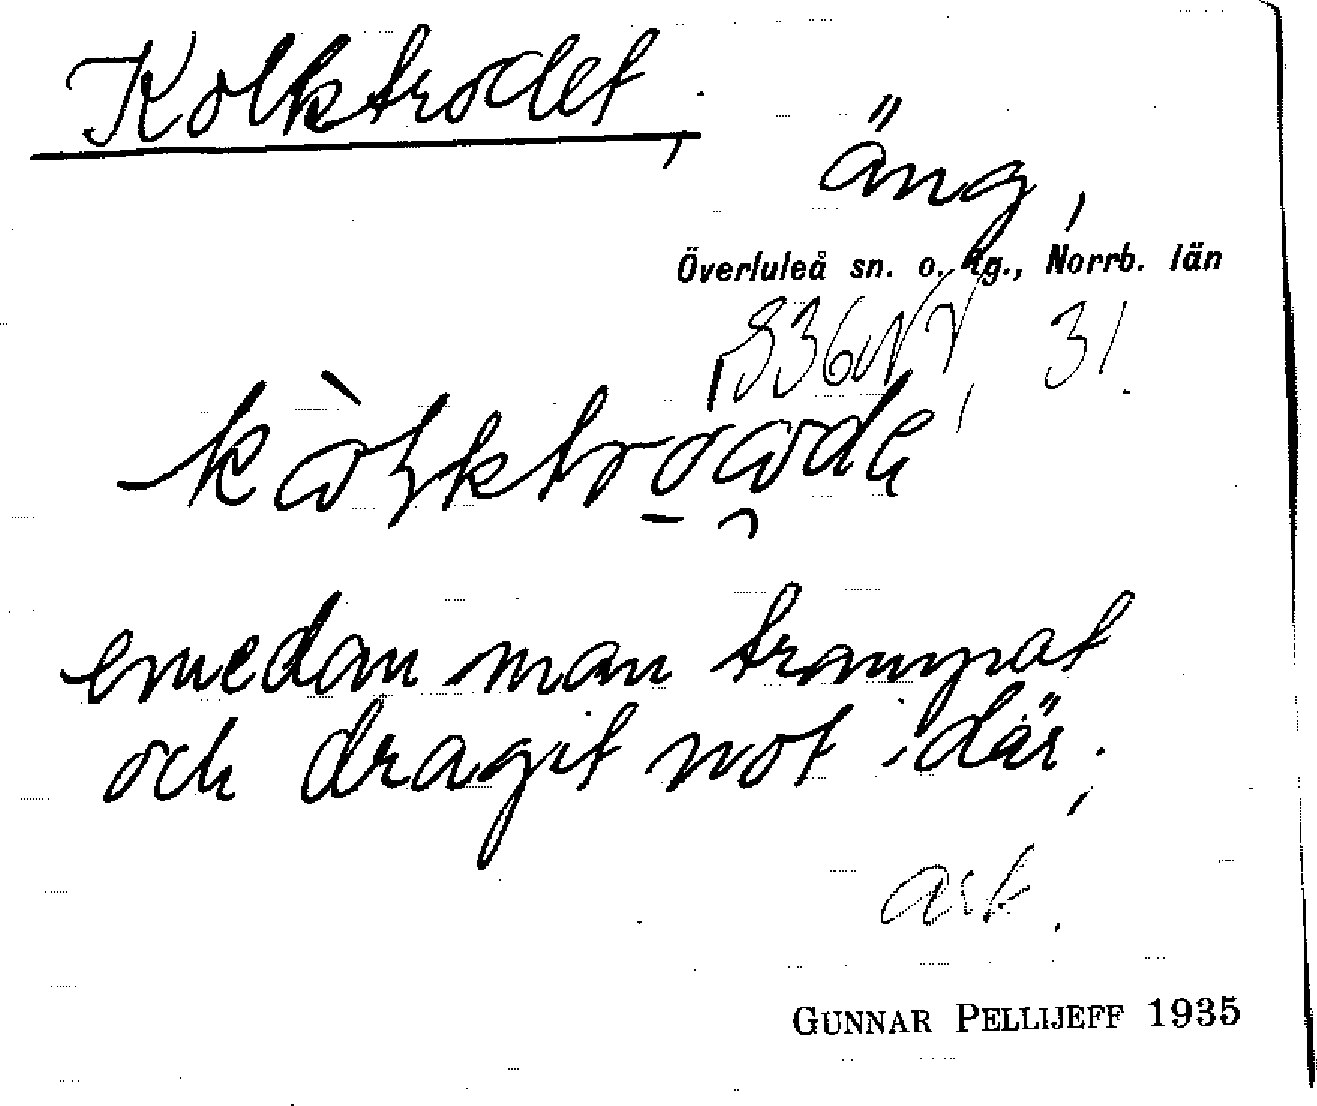 Kolktrodet,
äng,
Överluleå sn. o. tg., Norrb. län
31.
emedan man trampat
och dragit not idär.
GUNNAR PELLIJEFF 1935